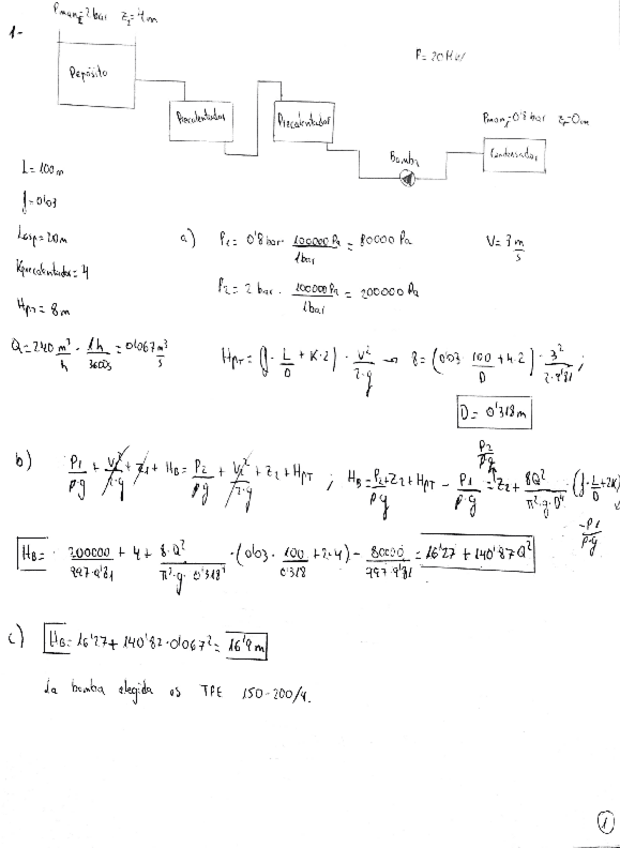 1-
Pman2=2bar Z2=4m
P=20MW
Depósito
Precalentador
Precalentador
Pman1=0'8bar Z1=0m
Bomba
Condensador
L=100m
f=0'03
Lasp=20m
Kprecalentador=4
HPT=8m
Q=240 m³/h · 1h/3600s = 0'067 m³/s
a) P1=0'8bar · 100000Pa/1bar = 80000 Pa V=3 m/s
P2=2 bar · 100000Pa/1bar = 200000 Pa
HPT=(f·L/D + K·2)·V²/2·g → 8=(0'03·100/D+4·2)·3²/2·9'81;
D= 0'318m
b) P1/ρ·g + V1²/2·g + Z1 + HB = P2/ρg + V2²/2·g + Z2 + HPT ; HB=P2/ρg+Z2+HPT - P1/ρ·g = P2/ρg Z2+ 8Q²/π²·g·D⁴·(f·L/D+2K)
-P1/ρ·g
HB= 200000/997·9'81 + 4 + 8·Q²/π²·g·0'318⁴·(0'03·100/0'318+2·4) - 80000/997·9'81 = 16'27 + 140'87Q²
c) HB=16'27+140'82·0'067²= 16'9m
La bomba elegida es TPE 150-200/4.
1